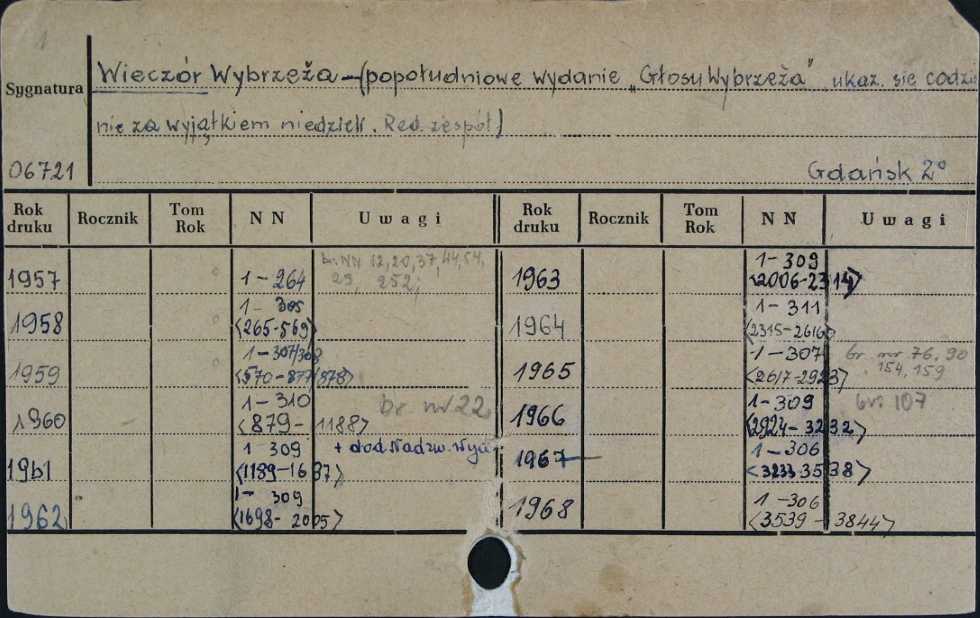 1
Wieczór Wybrzeża – (popołudniowe wydanie „Głosu Wybrzeża" ukaz. się codzie
Sygnatura
nie za wyjątkiem niedzieli. Red. zespół)
06721
Gdańsk 2°
Rok druku Rocznik Tom Rok N N Uwagi Rok druku Rocznik Tom Rok N N Uwagi
br. NN 12, 20, 37, 44, 54,
1957 1 – 264 252; 1963 1 – 309
<2006-2314>
1958 1 – 305 1964 1 – 311
<265-569> <2315-2616>
1959 1 – 307/308 1965 1 – 307 br. nr 76, 90
<570-877/878> <2617-2923> 154, 159
1960 1 – 310 br. nr 22 1966 1 – 309 br. 107
<879 – 1188> <2924-3232>
1961 1 – 309 + dod. Nadzw. Wyd. 1967 1 – 306
<1189-1637> <3233-3538>
1962 1 – 309 1968 1 – 306
<1698 – 2005> <3539 – 3844>